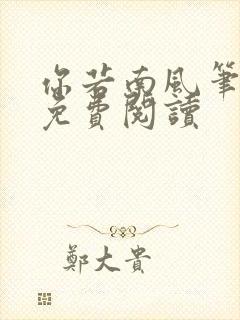 你若南風筆
免費閱讀
鄭大貴